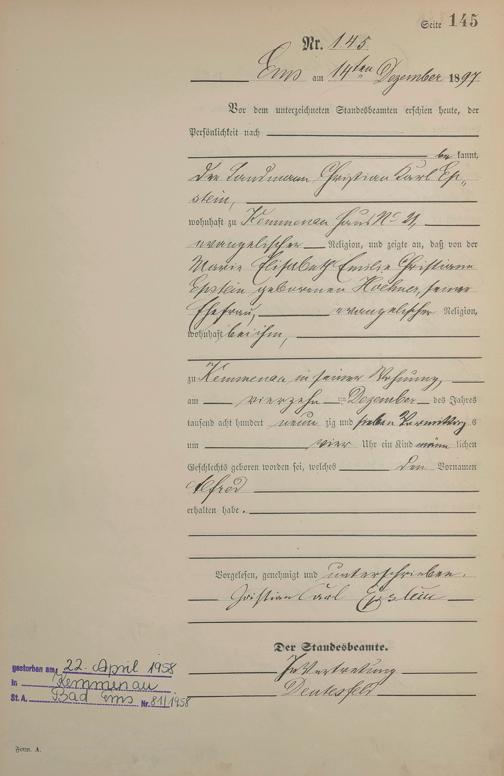 Seite 145
Nr. 145.
Ems am 14ten Dezember 1897
Vor dem unterzeichneten Standesbeamten erschien heute, der
Persönlichkeit nach
be kannt,
der Landmann Christian Karl Ep-
stein,
wohnhaft zu Kemmenau Haus No 21,
evangelischer Religion, und zeigte an, daß von der
Marie Elisabeth Emilie Christiane
Epstein geborenen seiner
Ehefrau, evangelischer Religion,
wohnhaft bei ihm,
zu Kemmenau in seiner Wohnung,
am vierzehn = Dezember des Jahres
tausend acht hundert neun zig und sieben Vormittag s
um vier Uhr ein Kind männ lichen
Geschlechts geboren worden sei, welches den Vornamen
Alfred
erhalten habe.
Vorgelesen, genehmigt und unterschrieben.
Christian Carl Epstein
Der Standesbeamte.
In Vertretung
gestorben am 22. April 1958
in Kemmenau
St. A. Bad Ems Nr. 81/1958
Form. A.